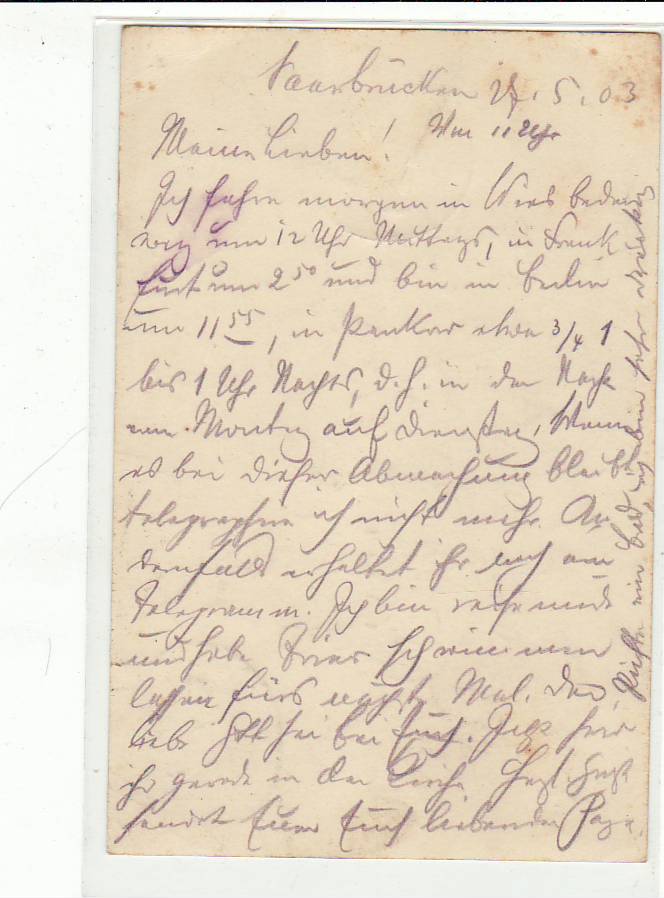 Saarbrücken 24. 5. 03
Vm 11 Uhr
Meine Lieben!
Ich fahre morgen in Wiesbaden
weg um 12 Uhr Mittags, in Frank
furt um 2 50 und bin in Berlin
um 11 55, in Pankow etwa 3/4 1
bis 1 Uhr Nachts, d. h. in der Nacht
von Montag auf Dienstag. Wenn
es bei dieser Abmachung bleibt
telegraphire ich nicht mehr. An
dernfalls erhaltet ihr noch ein
Telegramm. Ich bin reisemüde
und habe Trier schwimmen
lassen fürs nächste Mal. Der
liebe Gott sei bei Euch. Jetzt seid
ihr gerade in der Kirche. Herzl. Gruß
sendet Euer Euch liebender Papa.
ein Bad, ich bin sehr